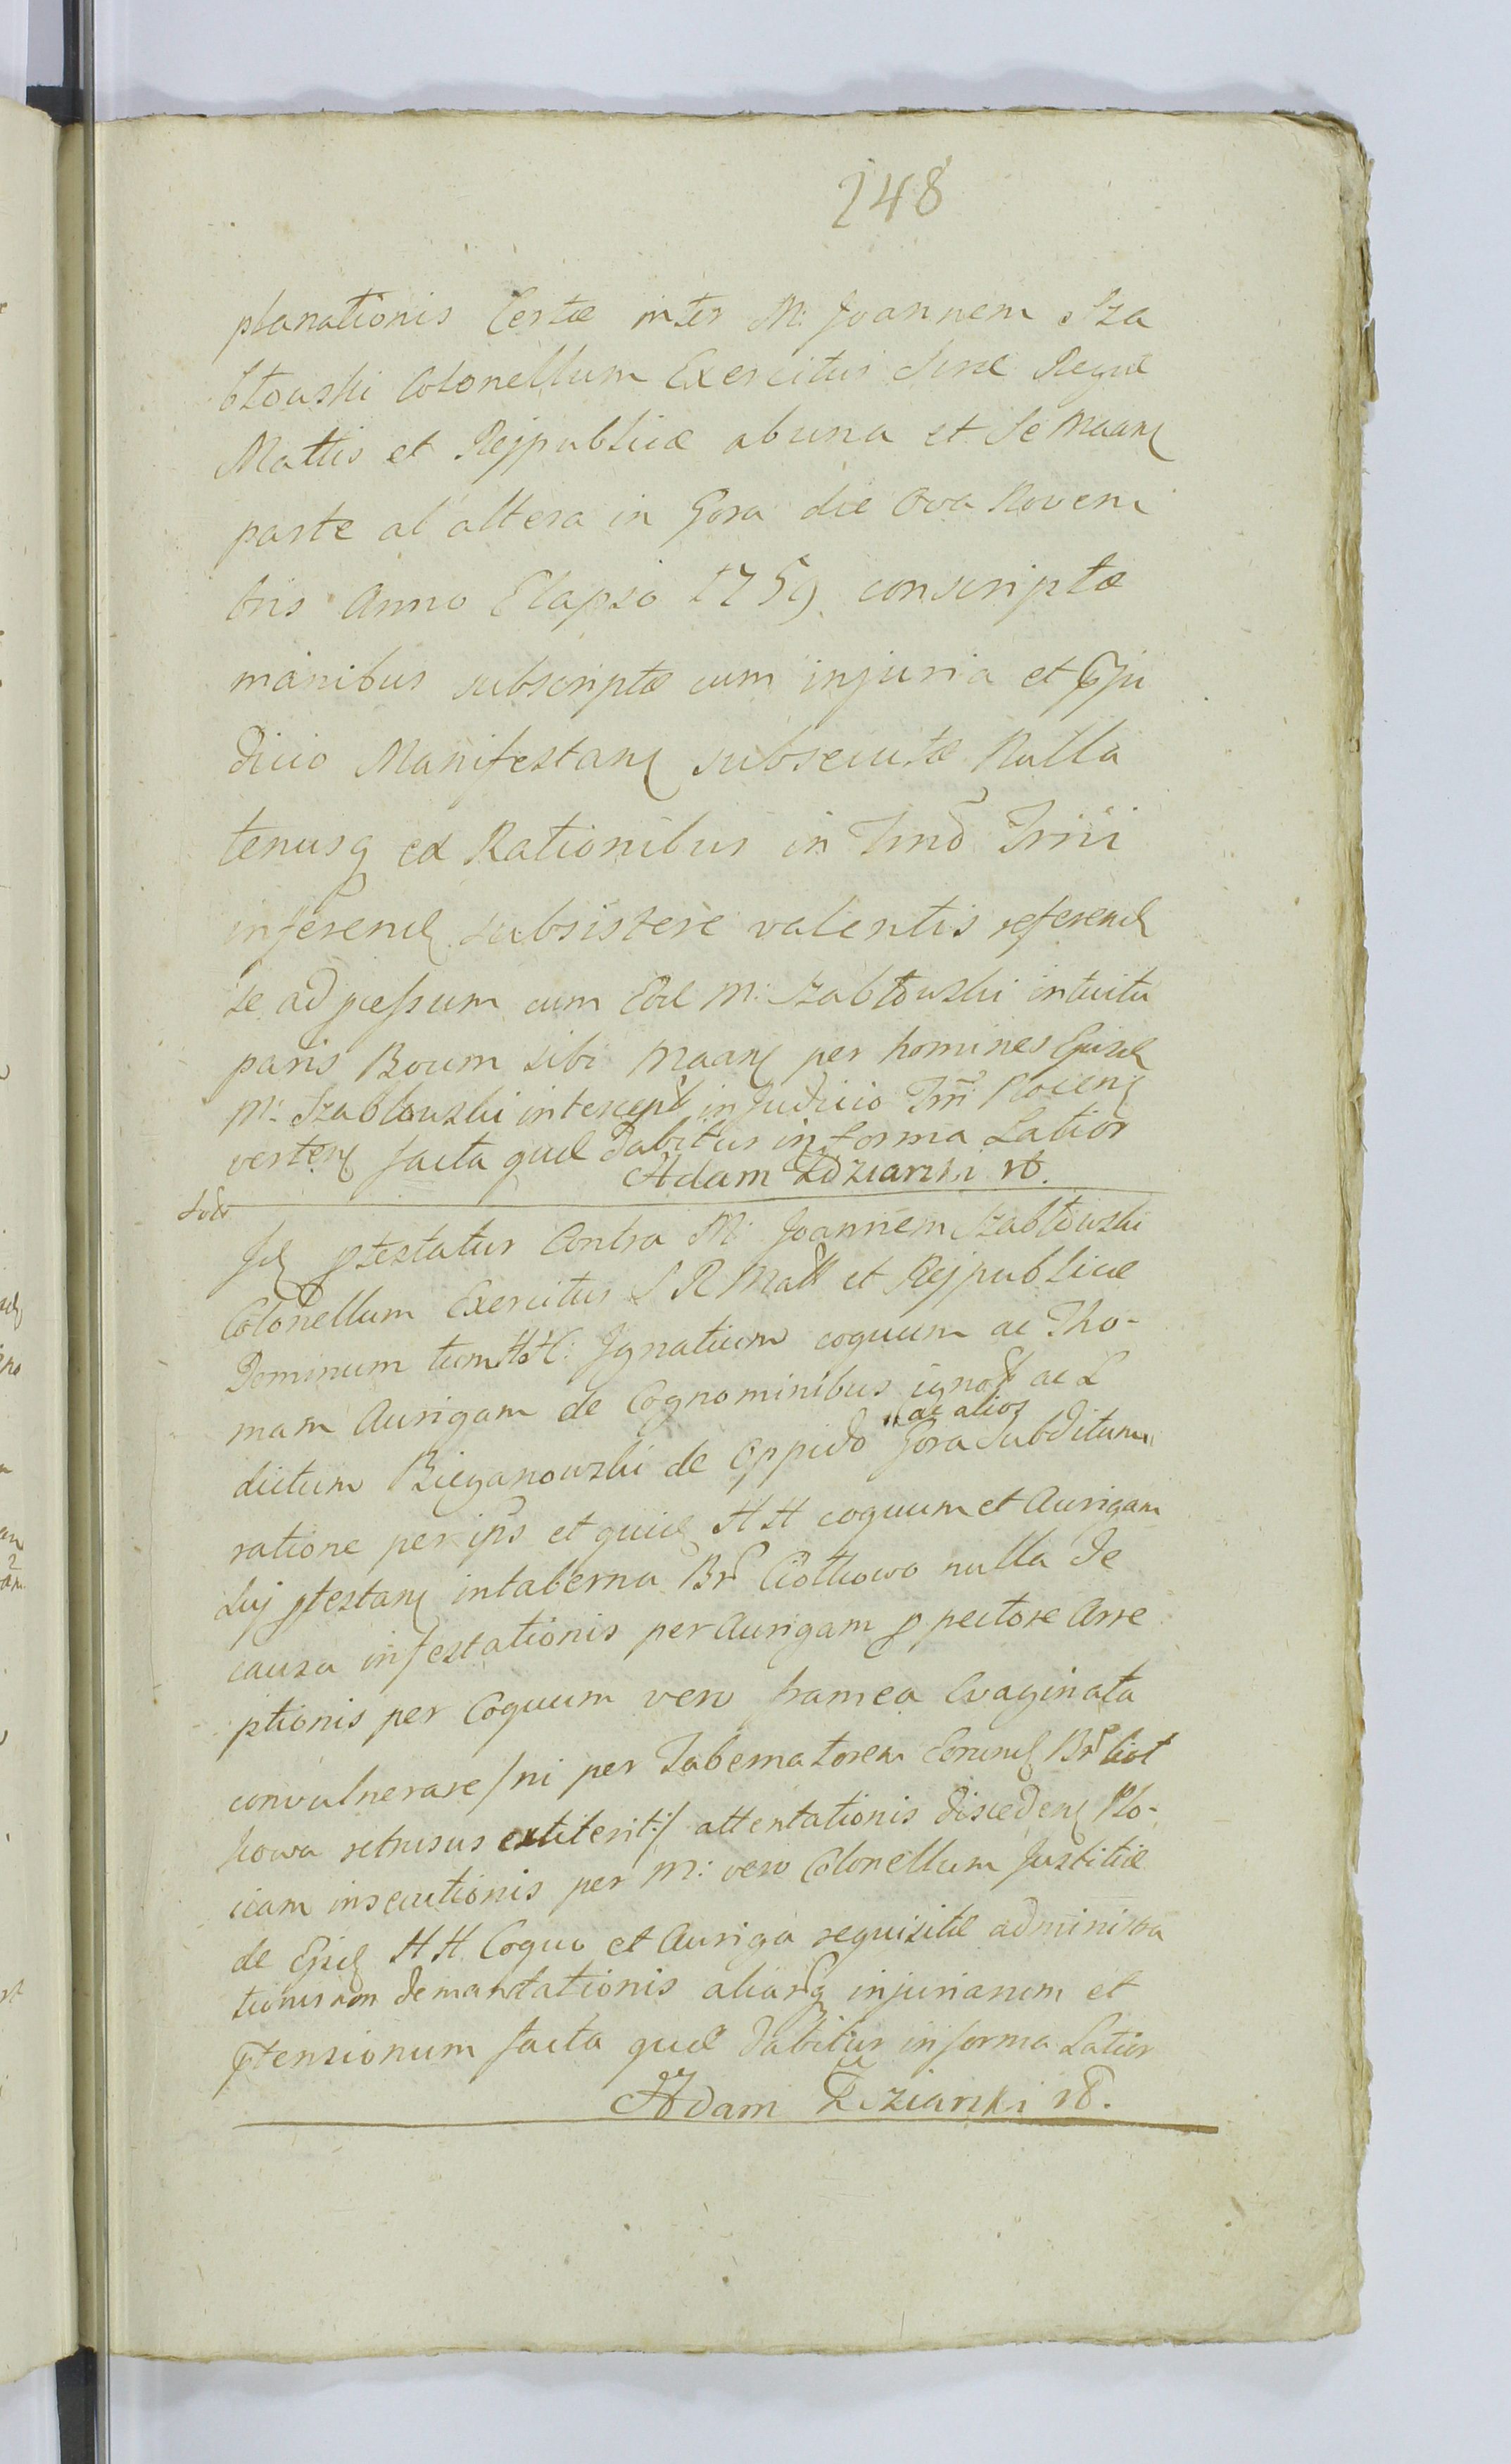 248
planationis Certæ inter M: Joannem Sza
błowski Colonellum Exercitus Sræ Regiæ
Mattis et Rejpublicæ ab una et Se Maan
parte ab altera in Gora die 8va Novem
bris Anno Elapso 1759 conscriptæ
manibus subscriptæ cum injuria et pju
dicio Manifestan subsecutæ Nulla
tenusq ex Rationibus in Tmo Trii
inferend subsistere valentis referend
se ad pcessum cum Eod M: Szabłowski intuitu
paris Boum sibi Maan per homines Ejusd
M: Szablowski intercept in Judicio Tri Plocen
verten facta qued dabitur in forma Latior
Adam Zdziarski
Id ptestatur Contra M: Joannem Szabłowski
Colonellum Exercitus S R Matt et Rejpublicæ
Dominum tum HH: Ignatium coquum ac Tho-
mam Aurigam de Cognominibus ignot ac L
ac alios
dictum Bieganowski de Oppido Gora subditum
ratione per ips et quid HH coquum et Aurigam
Suj ptestan in taberna Br Ciołkowo nulla de
causa infestationis per Aurigam p pectore Arre
ptionis per Coquum vero framea Evaginata
convulnerare / ni per Tabernatorem Eorund Br Cioł
kowa retrusus extiterit:/ attentationis disceden Plo-
ciam insecutionis per M: vero Colonellum Justitiæ
de Ejsd HH. Coquo et Auriga requisitæ administra
tionis non demandationis aliarq injuriarum et
ptensionum facta qued dabitur in forma Latior
Adam Zdziarski